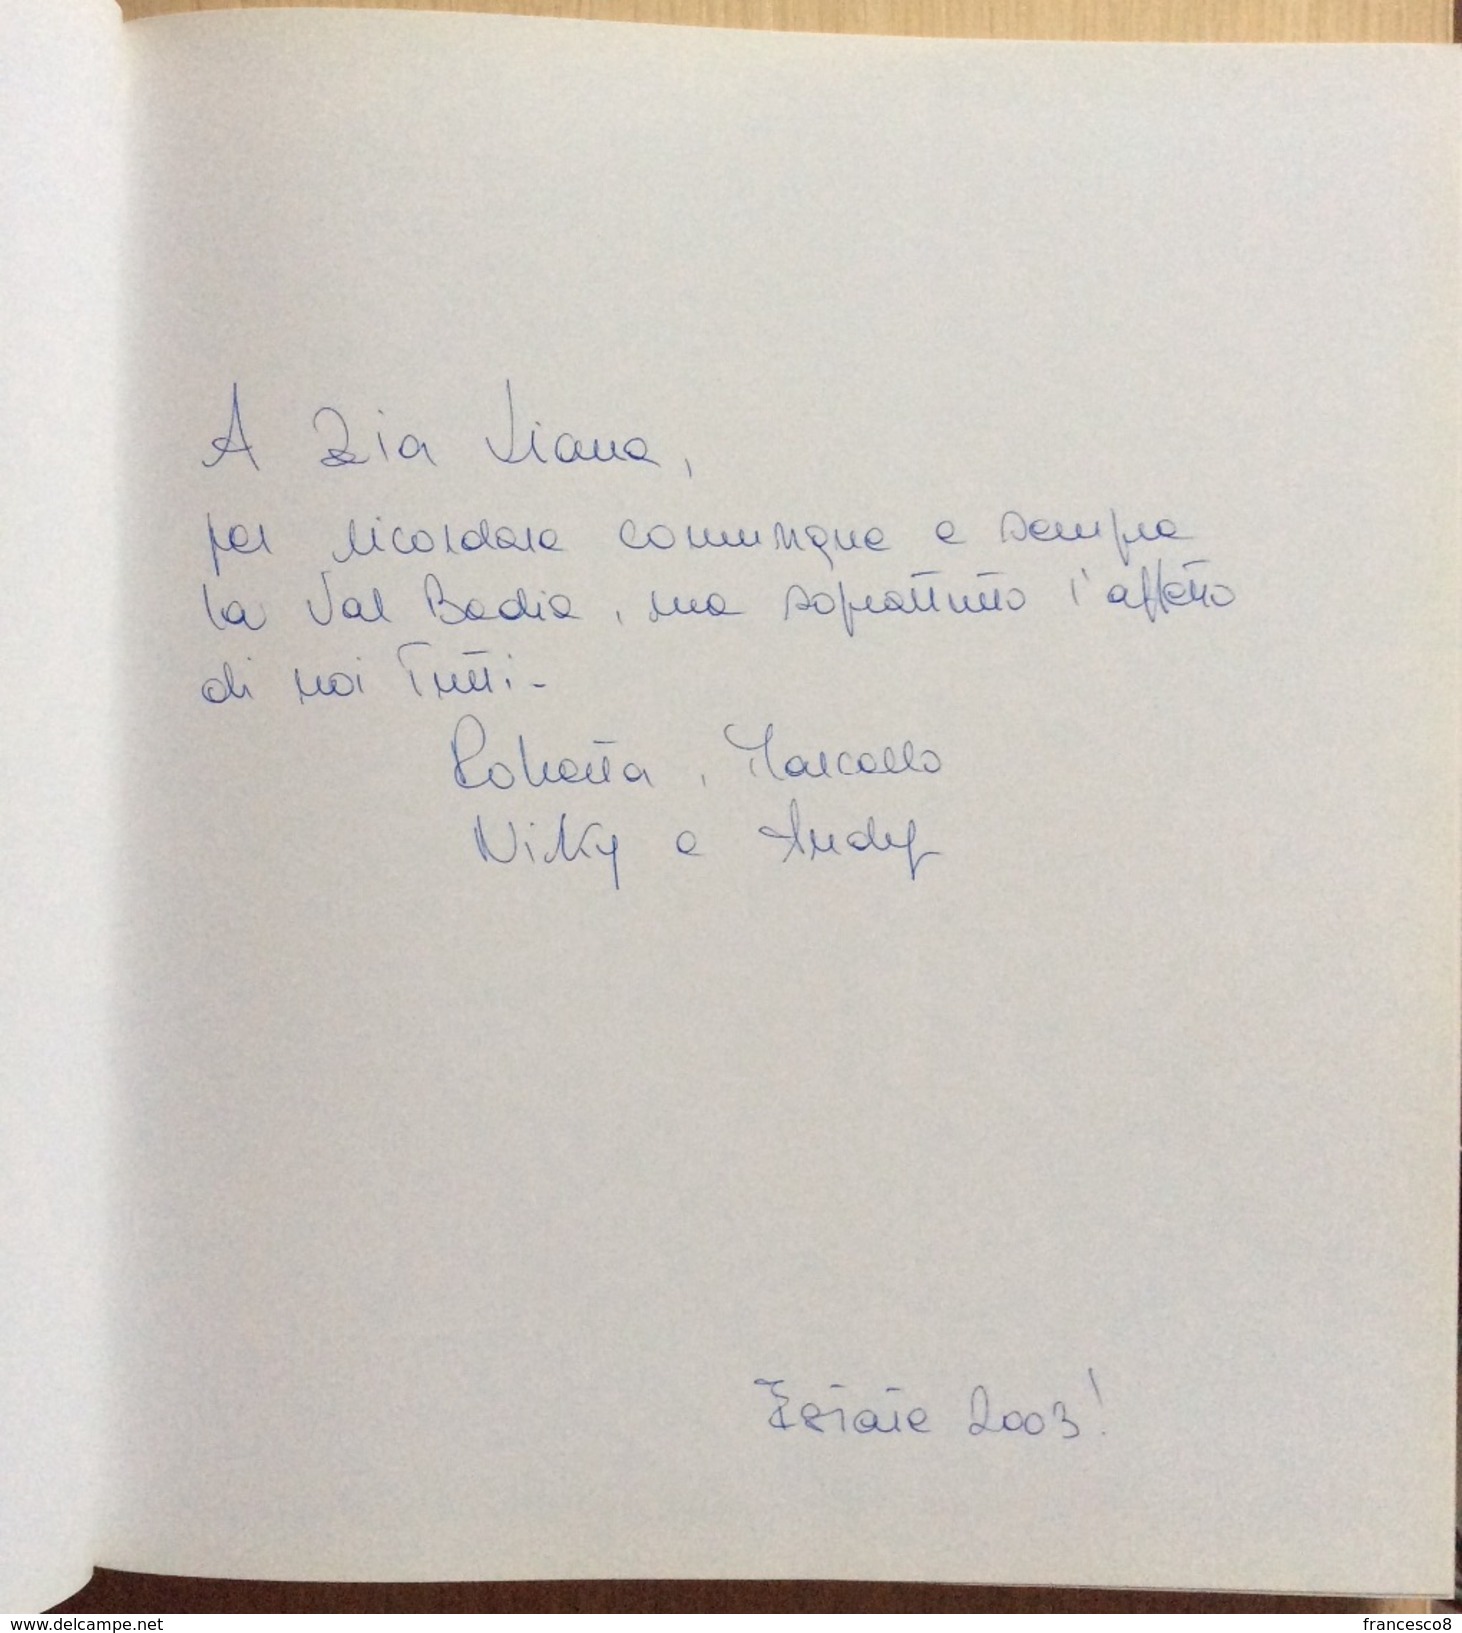 A Zia Viana,
per ricordare comunque e sempre
la Val Badia, ma soprattutto l'affetto
di noi Tutti-
Roberta, Marcello
Niky e Andy
Estate 2003!
www.delcampe.net
francesco8